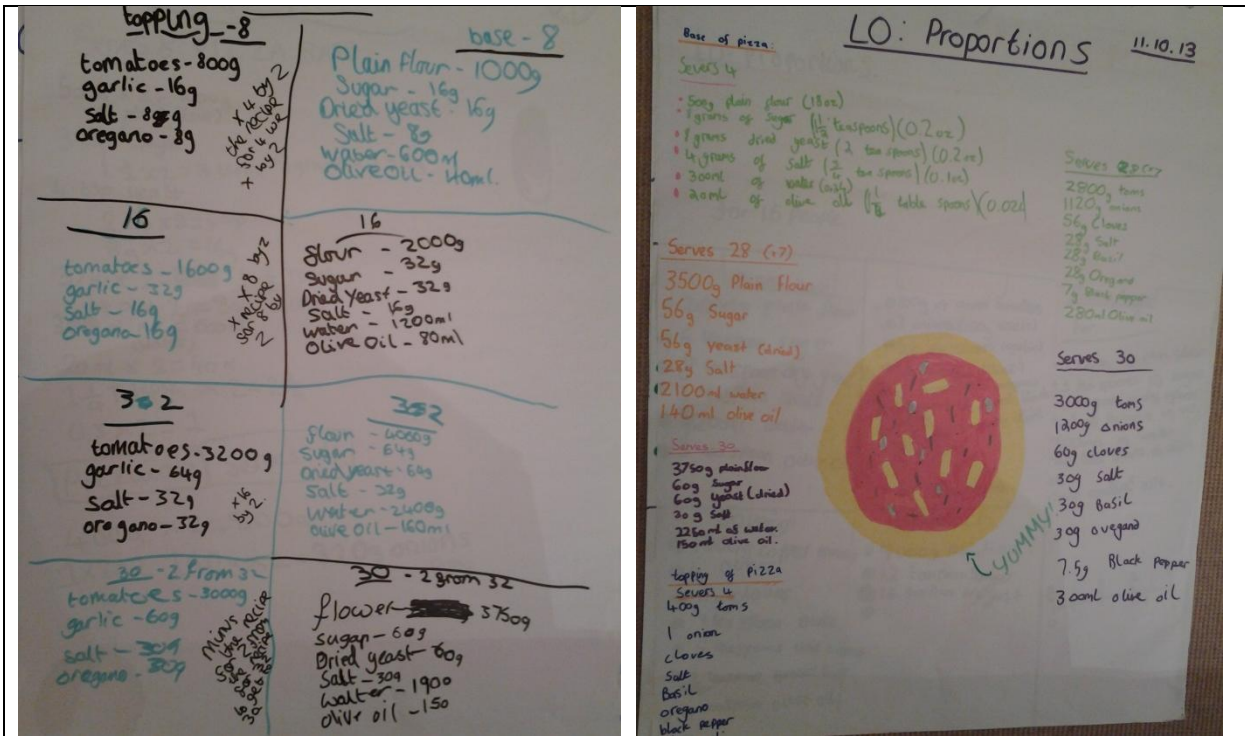 topping - 8
tomatoes - 800g
garlic - 16g
Salt - 8g
oregano - 8g
x 4 by 2
the recipe
for 4 we
x by 2
base - 8
Plain flour - 1000g
Sugar - 16g
Dried yeast - 16g
Salt - 8g
water - 600ml
Olive Oil - 40ml.
16
tomatoes - 1600g
garlic - 32g
Salt - 16g
oregano 16g
x 8 by 2
x recipe
for 8 by
2
16
flour - 2000g
Sugar - 32g
Dried Yeast - 32g
Salt - 16g
water - 1200ml
Olive Oil - 80ml
32
tomatoes - 3200g
garlic - 64g
Salt - 32g
oregano - 32g
x 16
by 2.
32
flour - 4000g
Sugar - 64g
Dried yeast - 64g
Salt - 32g
Water - 2400g
olive oil - 160ml
30 - 2 from 32
tomatoes - 3000g
garlic - 60g
salt - 30g
oregano - 30g
Minus
the recipe
30 - 2 from 32
flower 3750g
sugar - 60g
Dried yeast - 60g
Salt - 30g
Walter - 1900
olive oil - 150
LO: Proportions
11.10.13
Base of pizza:
Severs 4
500g plain flour (18oz)
grams of Sugar teaspoons) (0.2oz)
grams dried yeast (2 tea spoons) (0.2oz)
4 grams of Salt tea spoons) (0.1oz)
300ml of water
20ml of olive table spoons)
Serves 28 (x7)
3500g Plain flour
56g Sugar
56g yeast (dried)
28g Salt
2100ml water
140ml olive oil
Serves 30
3750g plain flour
60g Sugar
60g yeast (dried)
30g Salt
2250ml of water.
150ml olive oil.
topping of pizza
Severs 4
400g toms
1 onion
cloves
Salt
Basil
oregano
black pepper
Serves 28
2800g toms
1120g onions
56g Cloves
28g Salt
28g Basil
28g Oregano
7g Black pepper
280ml Olive oil
Serves 30
3000g toms
1200g onions
60g cloves
30g salt
30g Basil
30g oregano
7.5g Black Pepper
300ml olive oil
YUMMY!